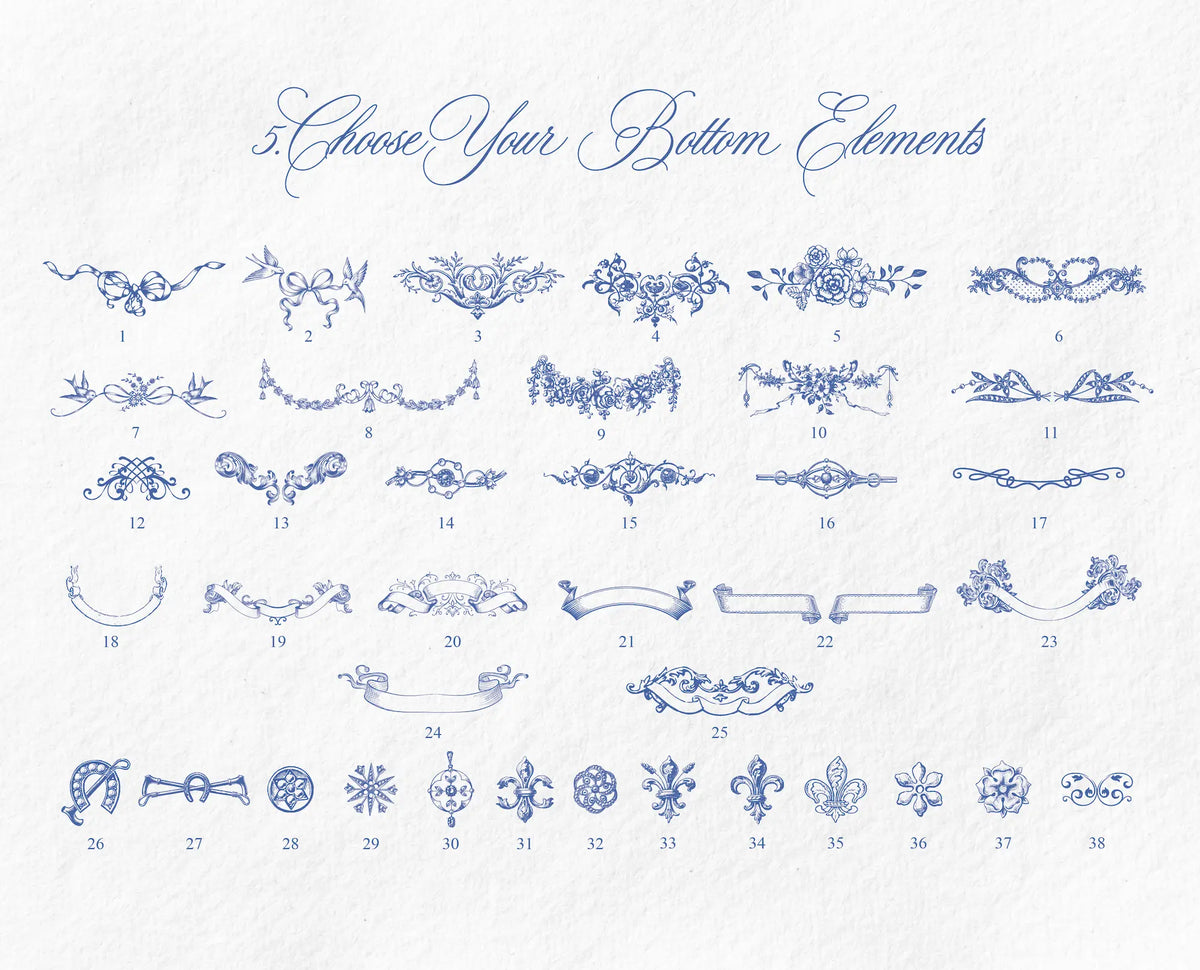 5. Choose Your Bottom Elements
1 2 3 4 5 6
7 8 9 10 11
12 13 14 15 16 17
18 19 20 21 22 23
24 25
26 27 28 29 30 31 32 33 34 35 36 37 38